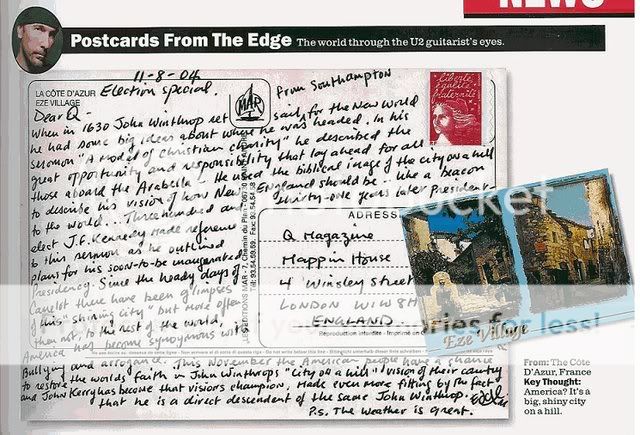 NEWS
Postcards From The Edge The world through the U2 guitarist's eyes.
11-8-04
Election special.
LA CÔTE D'AZUR
EZE VILLAGE
MAR
liberté
égalité
fraternité
Dear Q -
From Southampton
When in 1630 John Winthrop set sail for the New World
he had some big ideas about where he was headed. In his
sermon "A model of christian charity" he described the
great opportunity and responsibility that lay ahead for all
those aboard the Arabella - He used the biblical image of the city on a hill
to describe his vision of how New England should be - Like a beacon
to the world... Three hundred and thirty-one years later President-
elect J.F. Kennedy made reference
to this sermon as he outlined
plans for his soon-to-be inaugurated
Presidency. Since the heady days of
Camelot there have been glimpses
of this "shining city" but more often
than not, to the rest of the world,
America has become synonymous with
Bullying and arrogance. This November the American people have a chance
to restore the worlds faith in John Winthrops "city on a hill" vision of their country
and John Kerry has become that visions champion. Made even more fitting by the fact
that he is a direct descendent of the same John Winthrop. Edge
P.S. The weather is great.
ADRESSE
Q Magazine
Mappin House
4 Winsley Street
LONDON W1W 8H
ENGLAND
LES EDITIONS MAR - 7, Chemin du
Reproduction interdite - Imprimé
Eze Village
From: The Côte
D'Azur, France
Key Thought:
America? It's a
big, shiny city
on a hill.